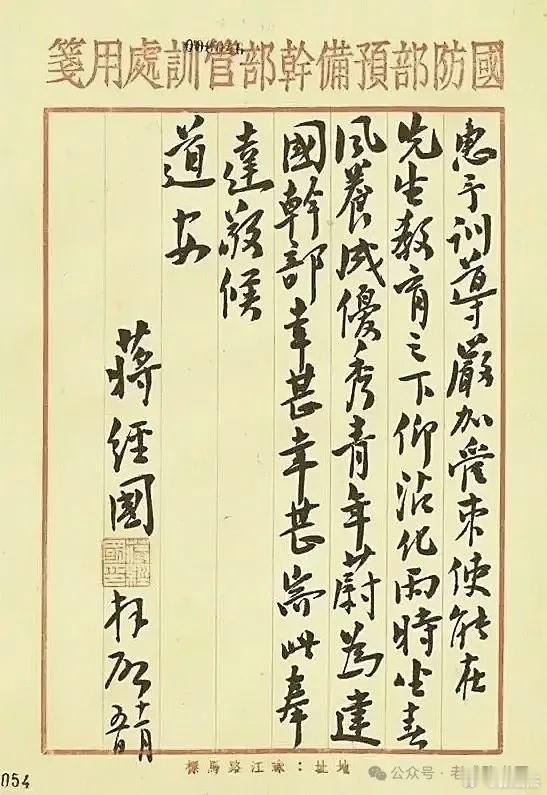 國防部預備幹部管訓處用箋
惠予訓導嚴加管束使能在
先生教育之下仰沾化雨時坐春
風養成優秀青年蔚為建
國幹部幸甚幸甚耑此奉
達敬候
道安
蔣經國
拜啟 十一月
地址：珠江路馬標
054
公众号·老